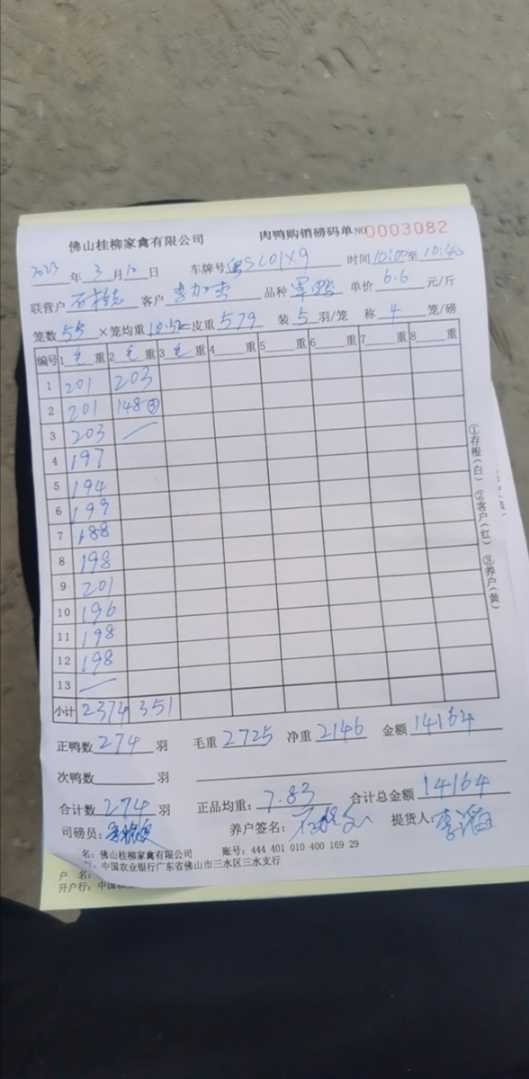 佛山桂柳家禽有限公司 肉鸭购销磅码单 NO 0003082
2023年3月10日 车牌号 时间 10:00至10:40
联营户 客户 品种 单价 6.6 元/斤
笼数 55 ×笼均重 皮重 579 装 5 羽/笼 称 4 笼/磅
编号 1 毛重 2 毛重 3 毛重 4 重 5 重 6 重 7 重 8 重
1 201 203
2 201 148
3 203
4 197
5 194
6 199
7 188
8 198
9 201
10 196
11 198
12 198
13
小计 2374 351
①存根(白) ②客户(红) ③养户(黄)
正鸭数 274 羽 毛重 2725 净重 2146 金额 14164
次鸭数 羽
合计数 274 羽 正品均重: 7.83 合计总金额 14164
司磅员: 养户签名: 提货人: 李
名: 佛山桂柳家禽有限公司 账号: 444 401 010 400 169 29
中国农业银行广东省佛山市三水区三水支行
户 名:
开户行: 中国